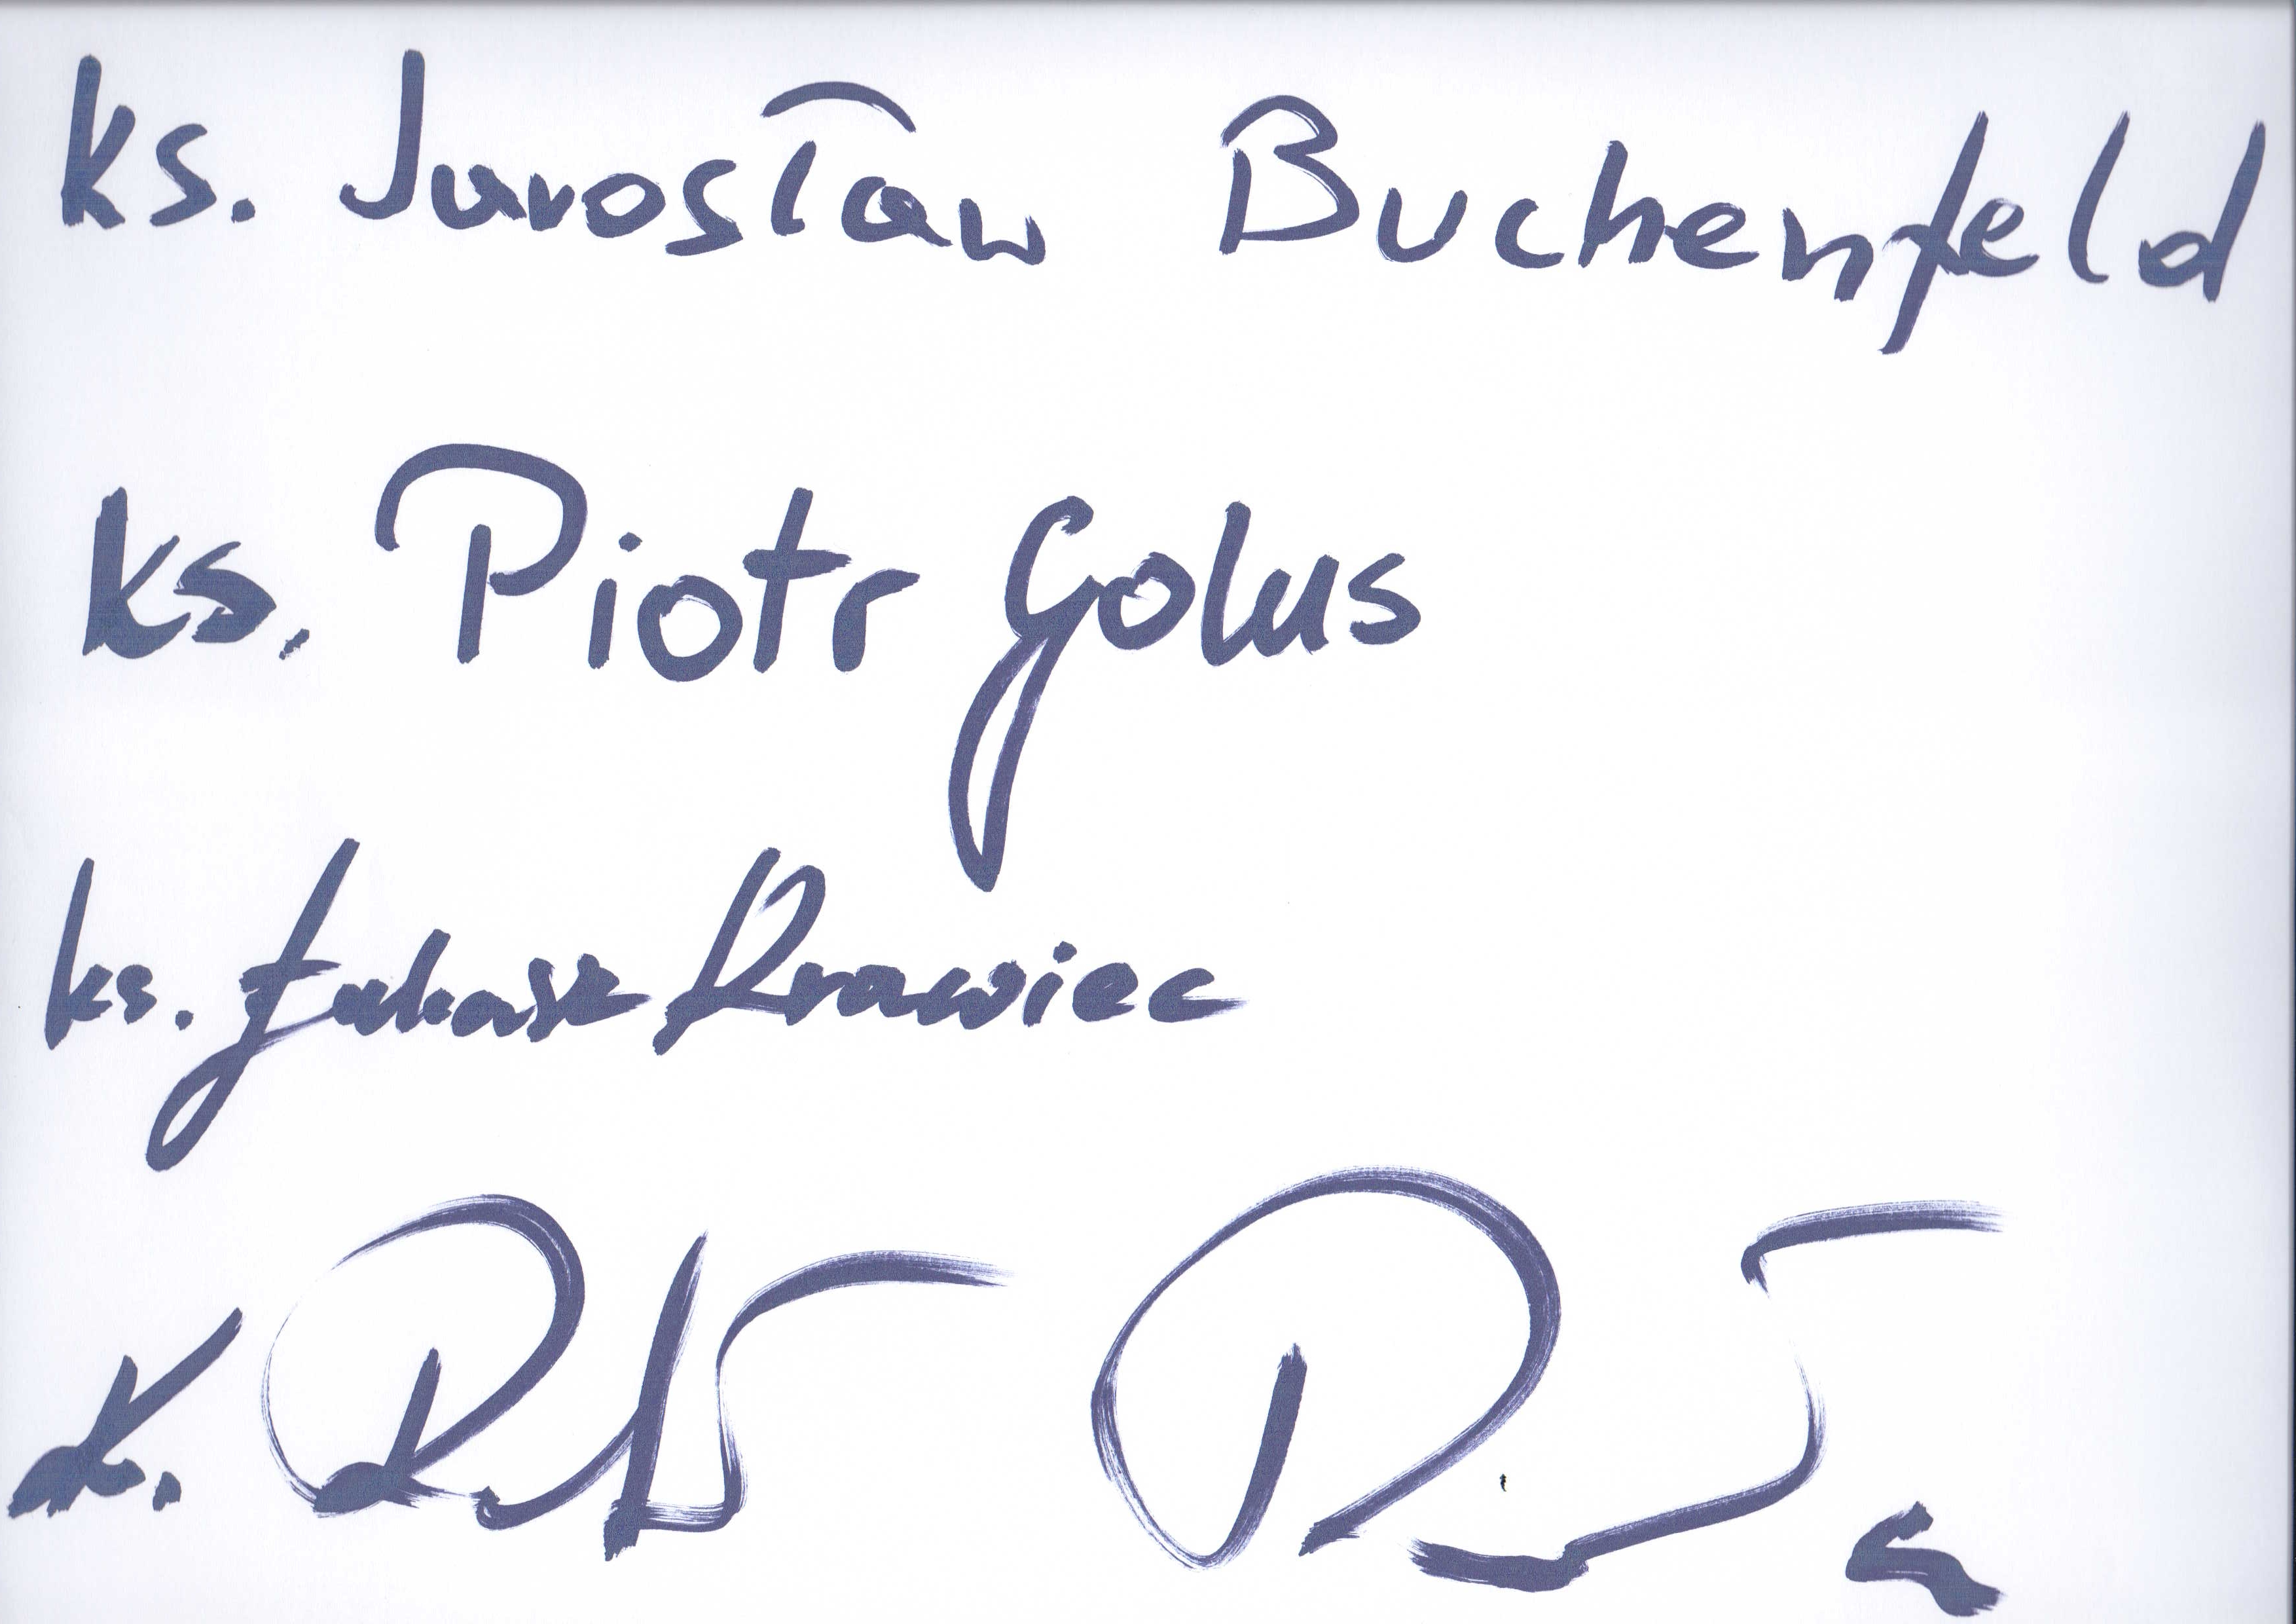 ks. Jarosław Buchenfeld
ks. Piotr Golus
ks. Łukasz Krawiec